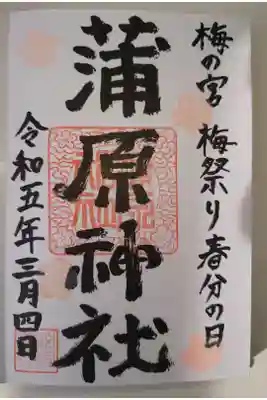 梅の宮 梅祭り春分の日
蒲原神社
令和五年三月四日